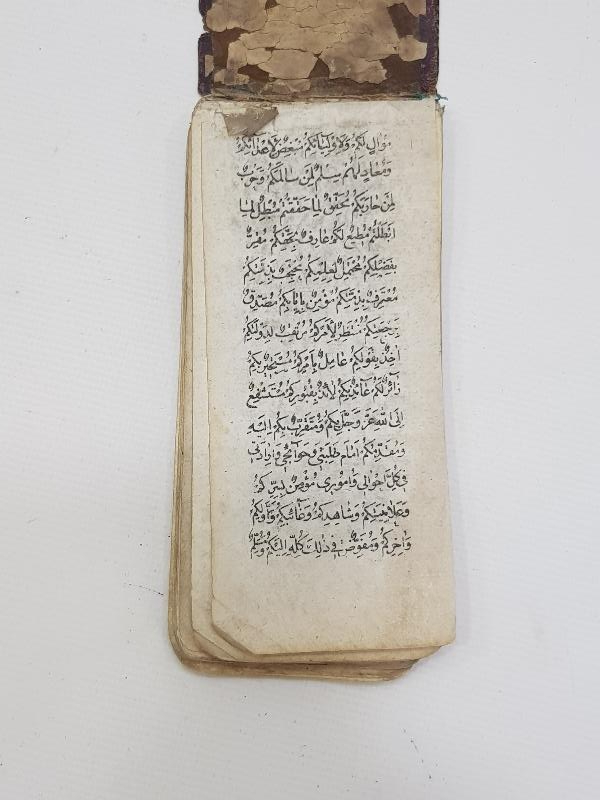 مُوالٍ لَكُمْ وَلِاَوْلِيٰائِكُمْ مُبْغِضٌ لِاَعْدٰائِكُمْ
وَمُعٰادٍ لَهُمْ سِلْمٌ لِمَنْ سٰالَمَكُمْ وَحَرْبٌ
لِمَنْ حٰارَبَكُمْ مُحَقِّقٌ لِمٰا حَقَّقْتُمْ مُبْطِلٌ لِمٰا
اَبْطَلْتُمْ مُطِيعٌ لَكُمْ عٰارِفٌ بِحَقِّكُمْ مُقِرٌّ
بِفَضْلِكُمْ مُحْتَمِلٌ لِعِلْمِكُمْ مُحْتَجِبٌ بِذِمَّتِكُمْ
مُعْتَرِفٌ بِذِمَّتِكُمْ مُؤْمِنٌ بِاِيٰابِكُمْ مُصَدِّقٌ
بِرَجْعَتِكُمْ مُنْتَظِرٌ لِاَمْرِكُمْ مُرْتَقِبٌ لِدَوْلَتِكُمْ
اٰخِذٌ بِقَوْلِكُمْ عٰامِلٌ بِاَمْرِكُمْ مُسْتَجِيرٌ بِكُمْ
زٰائِرٌ لَكُمْ عٰائِذٌ بِكُمْ لٰائِذٌ بِقُبُورِكُمْ مُسْتَشْفِعٌ
اِلَى اللّٰهِ عَزَّ وَجَلَّ بِكُمْ وَمُتَقَرِّبٌ بِكُمْ اِلَيْهِ
وَمُقَدِّمُكُمْ اَمٰامَ طَلِبَتِي وَحَوٰائِجِي وَاِرٰادَتِي
فِي كُلِّ اَحْوٰالِي وَاُمُورِي مُؤْمِنٌ بِسِرِّكُمْ
وَعَلٰانِيَتِكُمْ وَشٰاهِدِكُمْ وَغٰائِبِكُمْ وَاَوَّلِكُمْ
وَاٰخِرِكُمْ وَمُفَوِّضٌ فِي ذٰلِكَ كُلِّهِ اِلَيْكُمْ وَمُسَلِّمٌ